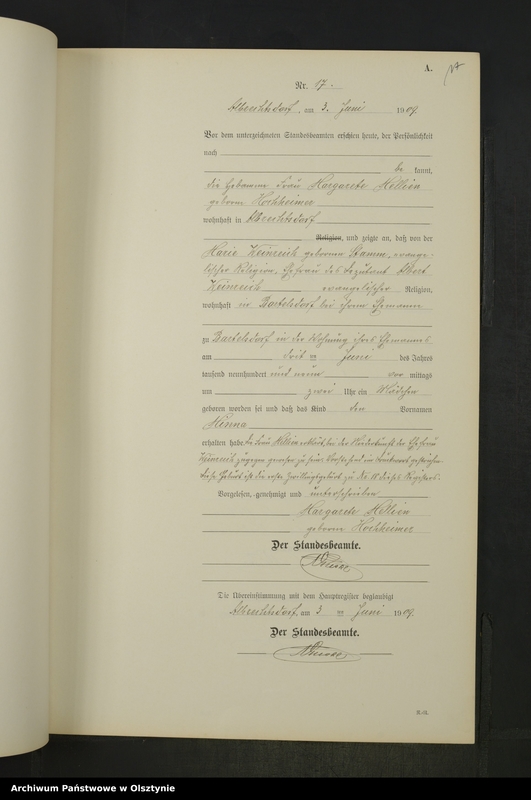 A.
17
Nr. 17.
Albrechtsdorf, am 3. Juni 1909.
Vor dem unterzeichneten Standesbeamten erschien heute, der Persönlichkeit
nach
be kannt,
die Hebamme Frau Margarete
geborene Hochheimer
wohnhaft in Albrechtsdorf
Religion, und zeigte an, daß von der
Marie Heinrich geborene Stamm, evange-
lischer Religion, Ehefrau des Albert
Heinrich evangelischer Religion,
wohnhaft in Bartelsdorf bei ihrem Ehemanne
zu Bartelsdorf in der Wohnung ihres Ehemannes
am drit en Juni des Jahres
tausend neunhundert und neun vor mittags
um zwei Uhr ein Mädchen
geboren worden sei und daß das Kind den Vornamen
Minna
erhalten habe. Die Frau erklärt, bei der Niederkunft der Ehefrau
Heinrich zugegen gewesen zu sein. Vorstehend im Vordruck gestrichen.
Diese Geburt ist die erste Zwillingsgeburt zu No 18 dieses Registers.
Vorgelesen, genehmigt und unterschrieben
Margarete
geborene Hochheimer
Der Standesbeamte.
Die Übereinstimmung mit dem Hauptregister beglaubigt
Albrechtsdorf, am 3 en Juni 1909.
Der Standesbeamte.
Archiwum Państwowe w Olsztynie